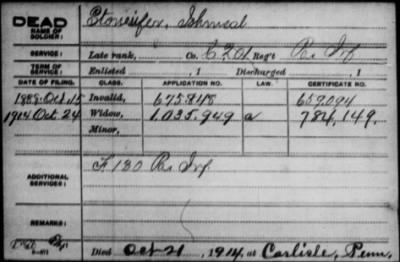 DEAD
NAME OF SOLDIER: Stonesifer, Ishmeal
SERVICE: Late rank, Co. C 201 Reg't Pa. Inf
TERM OF SERVICE: Enlisted , 1 Discharged , 1
DATE OF FILING. CLASS. APPLICATION NO. LAW. CERTIFICATE NO.
1888-Oct.15 Invalid, 675.848 659.094
1914 Oct. 24 Widow, 1.035.949 a 784,149.
Minor,
ADDITIONAL SERVICES: F 130 Pa Inf.
REMARKS:
Died Oct 21, 1914, at Carlisle, Penn,